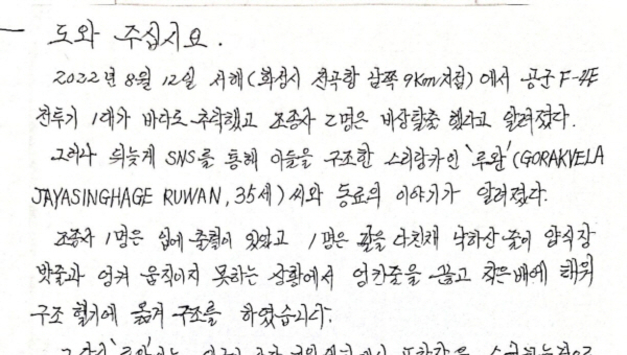 도와 주십시요.
2022년 8월 12일 서해(화성시 전곡항 남쪽 9Km지점)에서 공군 F-4E
전투기 1대가 바다로 추락했고 조종자 2명은 비상탈출 했다고 알려졌다.
그러나 뒤늦게 SNS를 통해 이들을 구조한 스리랑카인 '루완'(GORAKVELA
JAYASINGHAGE RUWAN, 35세)씨와 동료의 이야기가 알려졌다.
조종자 1명은 입에 출혈이 있었고 1명은 팔을 다친채 낙하산 줄이 양식장
밧줄과 엉켜 움직이지 못하는 상황에서 엉킨줄을 끊고 작은배에 태워
구조 헬기에 옮겨 구조를 하였습니다.